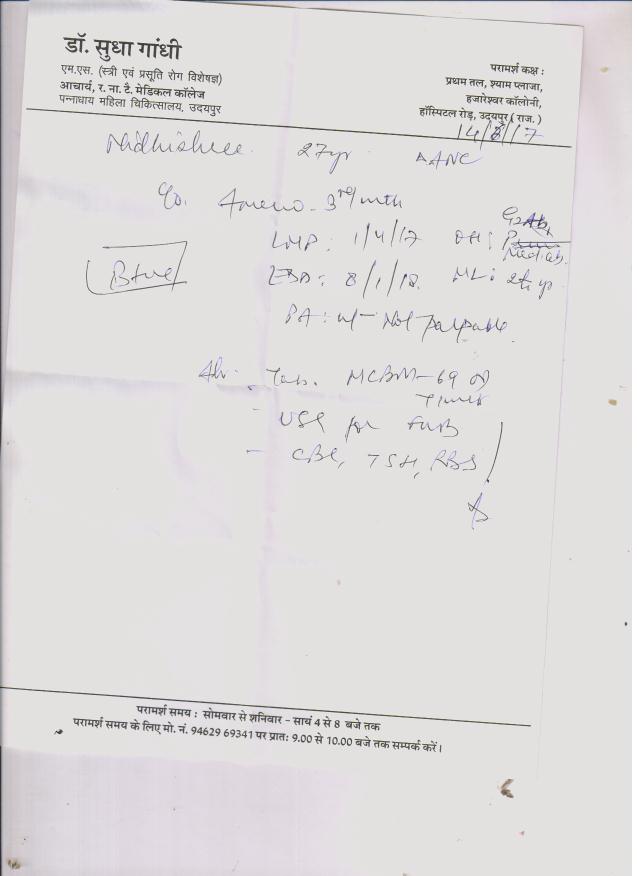 डॉ. सुधा गांधी
एम.एस. (स्त्री एवं प्रसूति रोग विशेषज्ञ)
आचार्य, र. ना. टै. मेडिकल कॉलेज
पन्नाधाय महिला चिकित्सालय, उदयपुर
परामर्श कक्ष :
प्रथम तल, श्याम प्लाजा,
हजारेश्वर कॉलोनी,
हॉस्पिटल रोड़, उदयपुर ( राज. )
27yr. AANC
3rd/mth
LMP: 1/4/17 OH:
B+ve
EDD: 8/1/18. ML:
PA: Not palpable
Tab. MCBM-69 OD
- USG for FWB
- CBC, TSH, RBS
परामर्श समय : सोमवार से शनिवार - सायं 4 से 8 बजे तक
परामर्श समय के लिए मो. नं. 94629 69341 पर प्रातः 9.00 से 10.00 बजे तक सम्पर्क करें।